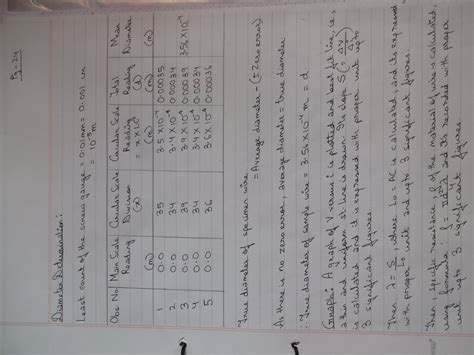 Pg-24
Diameter Determination:
Least count of the screw gauge = 0.01mm = 0.001 cm
= 10⁻⁵m
Obs No. Main Scale Reading (m) Circular Scale Division (n) Circular Scale Reading (m) Total Reading (d) (m) Mean Diameter (m)
1 0.0 35 3.5×10⁻⁴ 0.00035
2 0.0 34 3.4×10⁻⁴ 0.00034
3 0.0 39 3.9×10⁻⁴ 0.00039 3.56×10⁻⁴
4 0.0 34 3.4×10⁻⁴ 0.00034
5 0.0 36 3.6×10⁻⁴ 0.00036
True diameter of specimen wire
= Average diameter - (± Zero error)
As there is no zero error, average diameter = true diameter
∴ True diameter of sample wire = 3.56×10⁻⁴ m = d
Graph: A graph of V versus i is plotted and best fit line, i.e.,
a thin and uniform st line is drawn. Its slope S (= ΔV/Δi)
is calculated and it is expressed with proper unit upto
3 significant figures.
Then λ = S/L₀, where L₀ = AC is calculated. and its expressed
with proper unit and upto 3 significant figures.
Then, specific resistance, ρ of the material of wire is calculated,
using formula: ρ = πd²λ/4 and its recorded with proper
unit upto 3 significant figures.